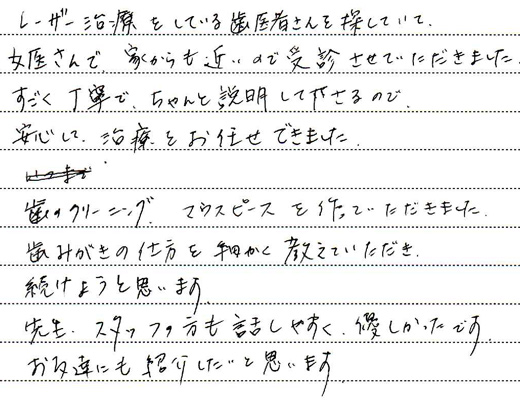 レーザー治療をしている歯医者さんを探していて、
女医さんで 家からも近いので受診させていただきました。
すごく丁寧で、ちゃんと説明して下さるので、
安心して、治療をお任せできました。
歯のクリーニング、マウスピースを作っていただきました。
歯みがきの仕方を細かく教えていただき、
続けようと思います
先生、スタッフの方も話しやすく、優しかったです。
お友達にも紹介したいと思います。